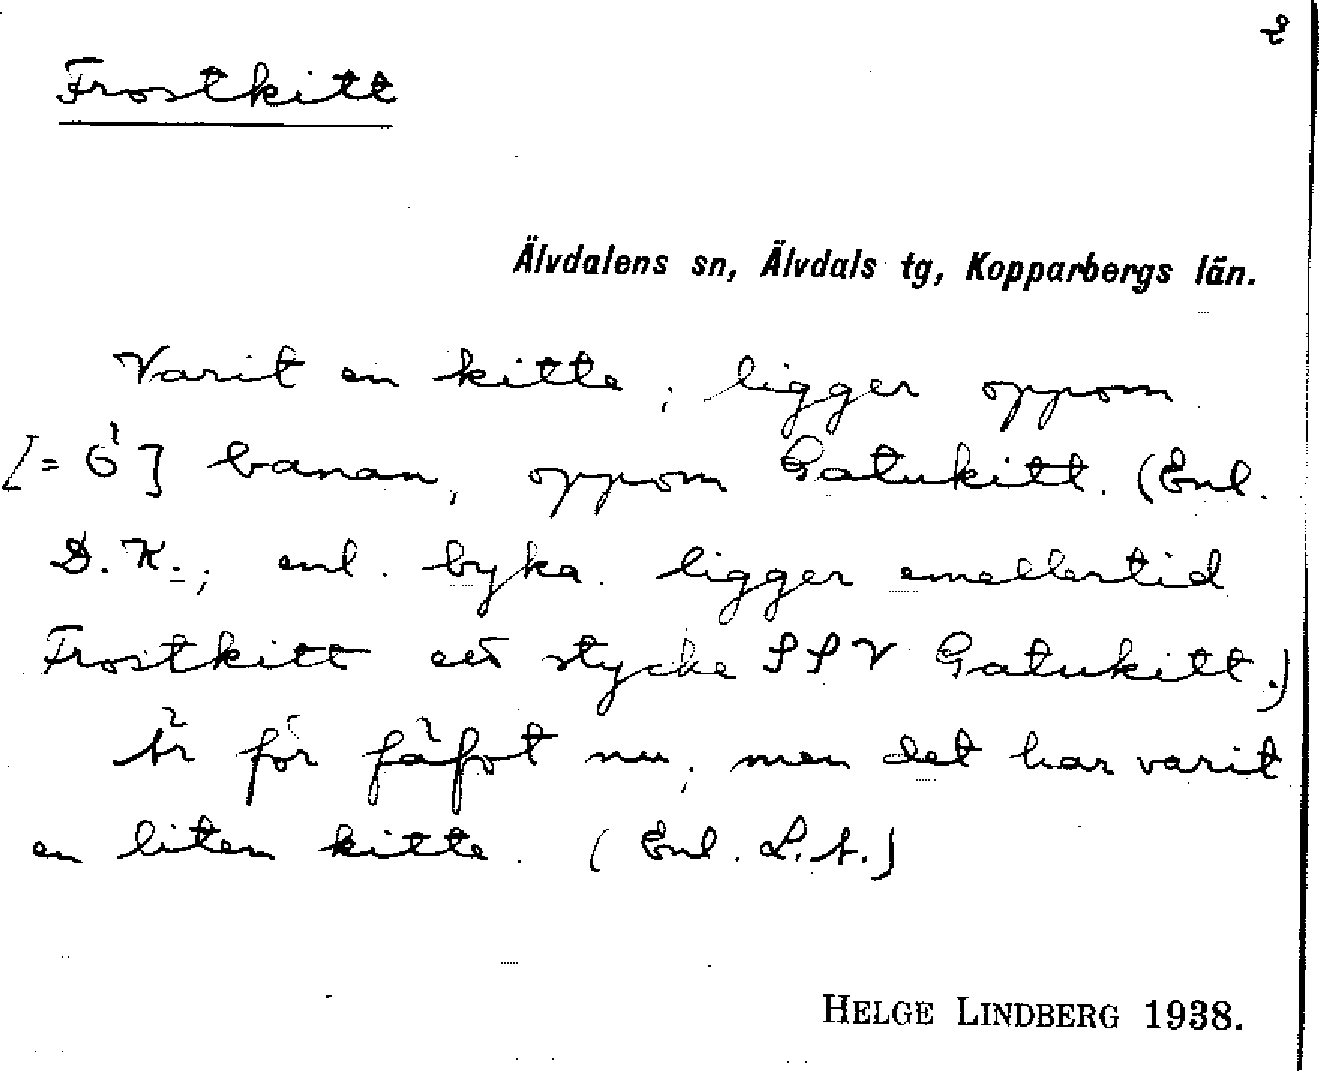 Frostkitt
Älvdalens sn, Älvdals tg, Kopparbergs län.
Varit en kitte; ligger oppom
[= Ö] banan, oppom Gatukitt. (Enl.
D. K.; enl. byka. ligger emellertid
Frostkitt ett stycke SSV Gatukitt.)
Är för fäfot nu; men det har varit
en liten kitte. (Enl. L. A.)
HELGE LINDBERG 1938.